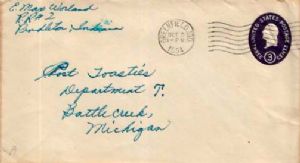 E. Max Worland
R.R. # 2
Pendleton, Indiana
GREENFIELD, IND.
OCT
PM
1954
UNITED STATES POSTAGE
3
CENTS
Post Toasties
Department T.
Battle Creek,
Michigan